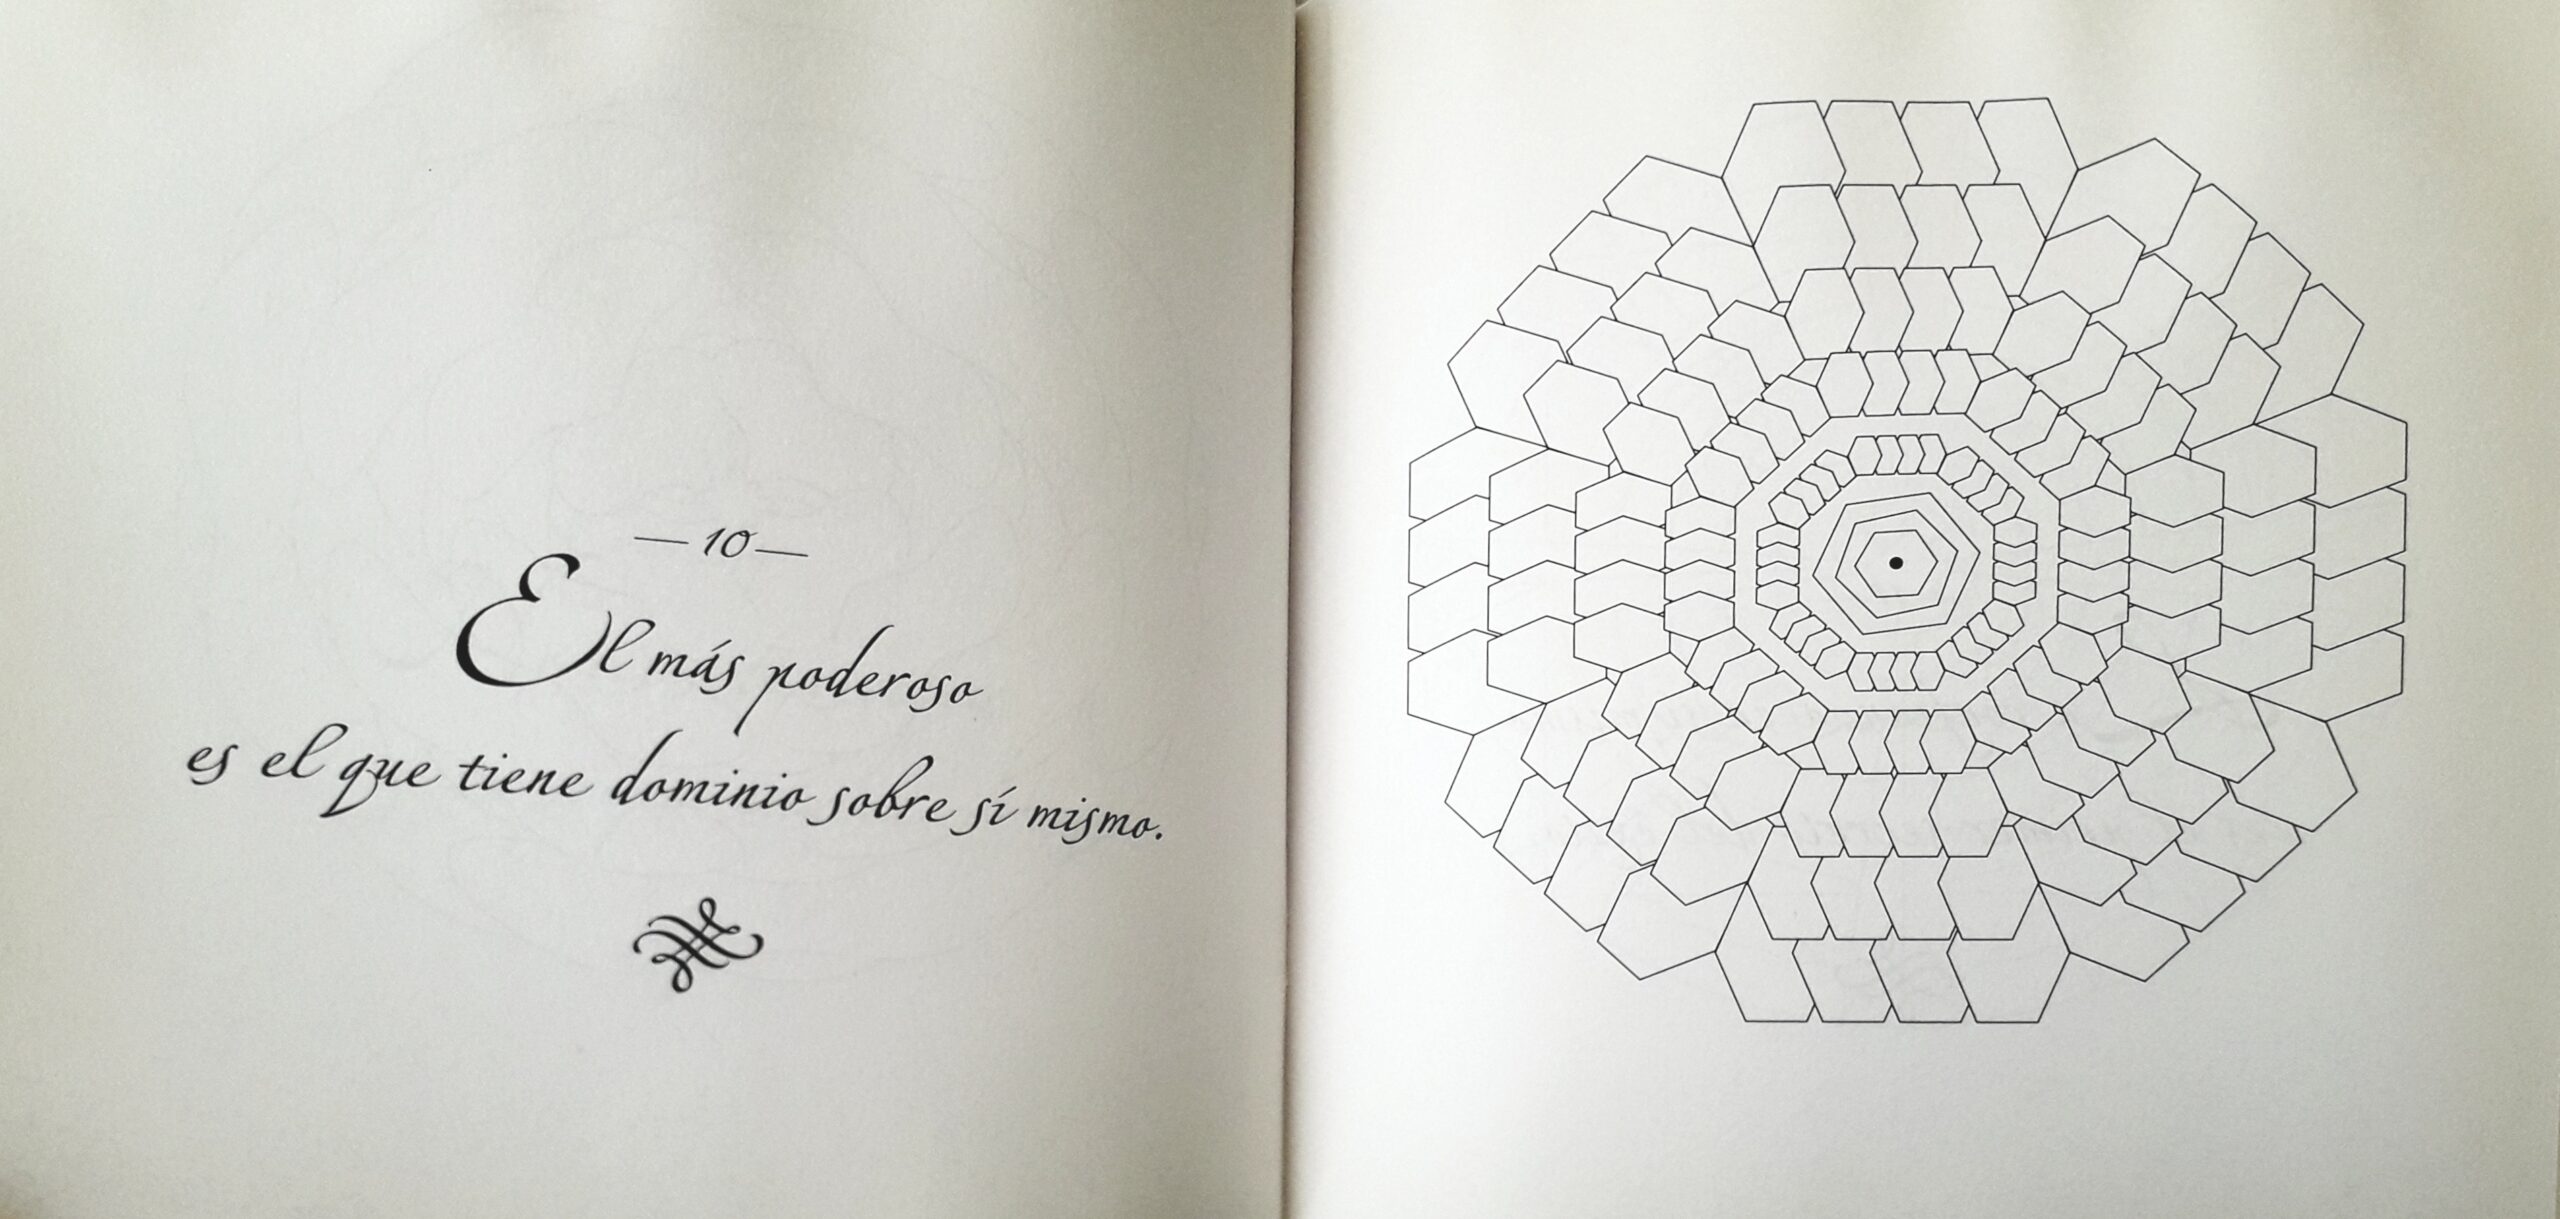 — 10 —
El más poderoso
es el que tiene dominio sobre sí mismo.